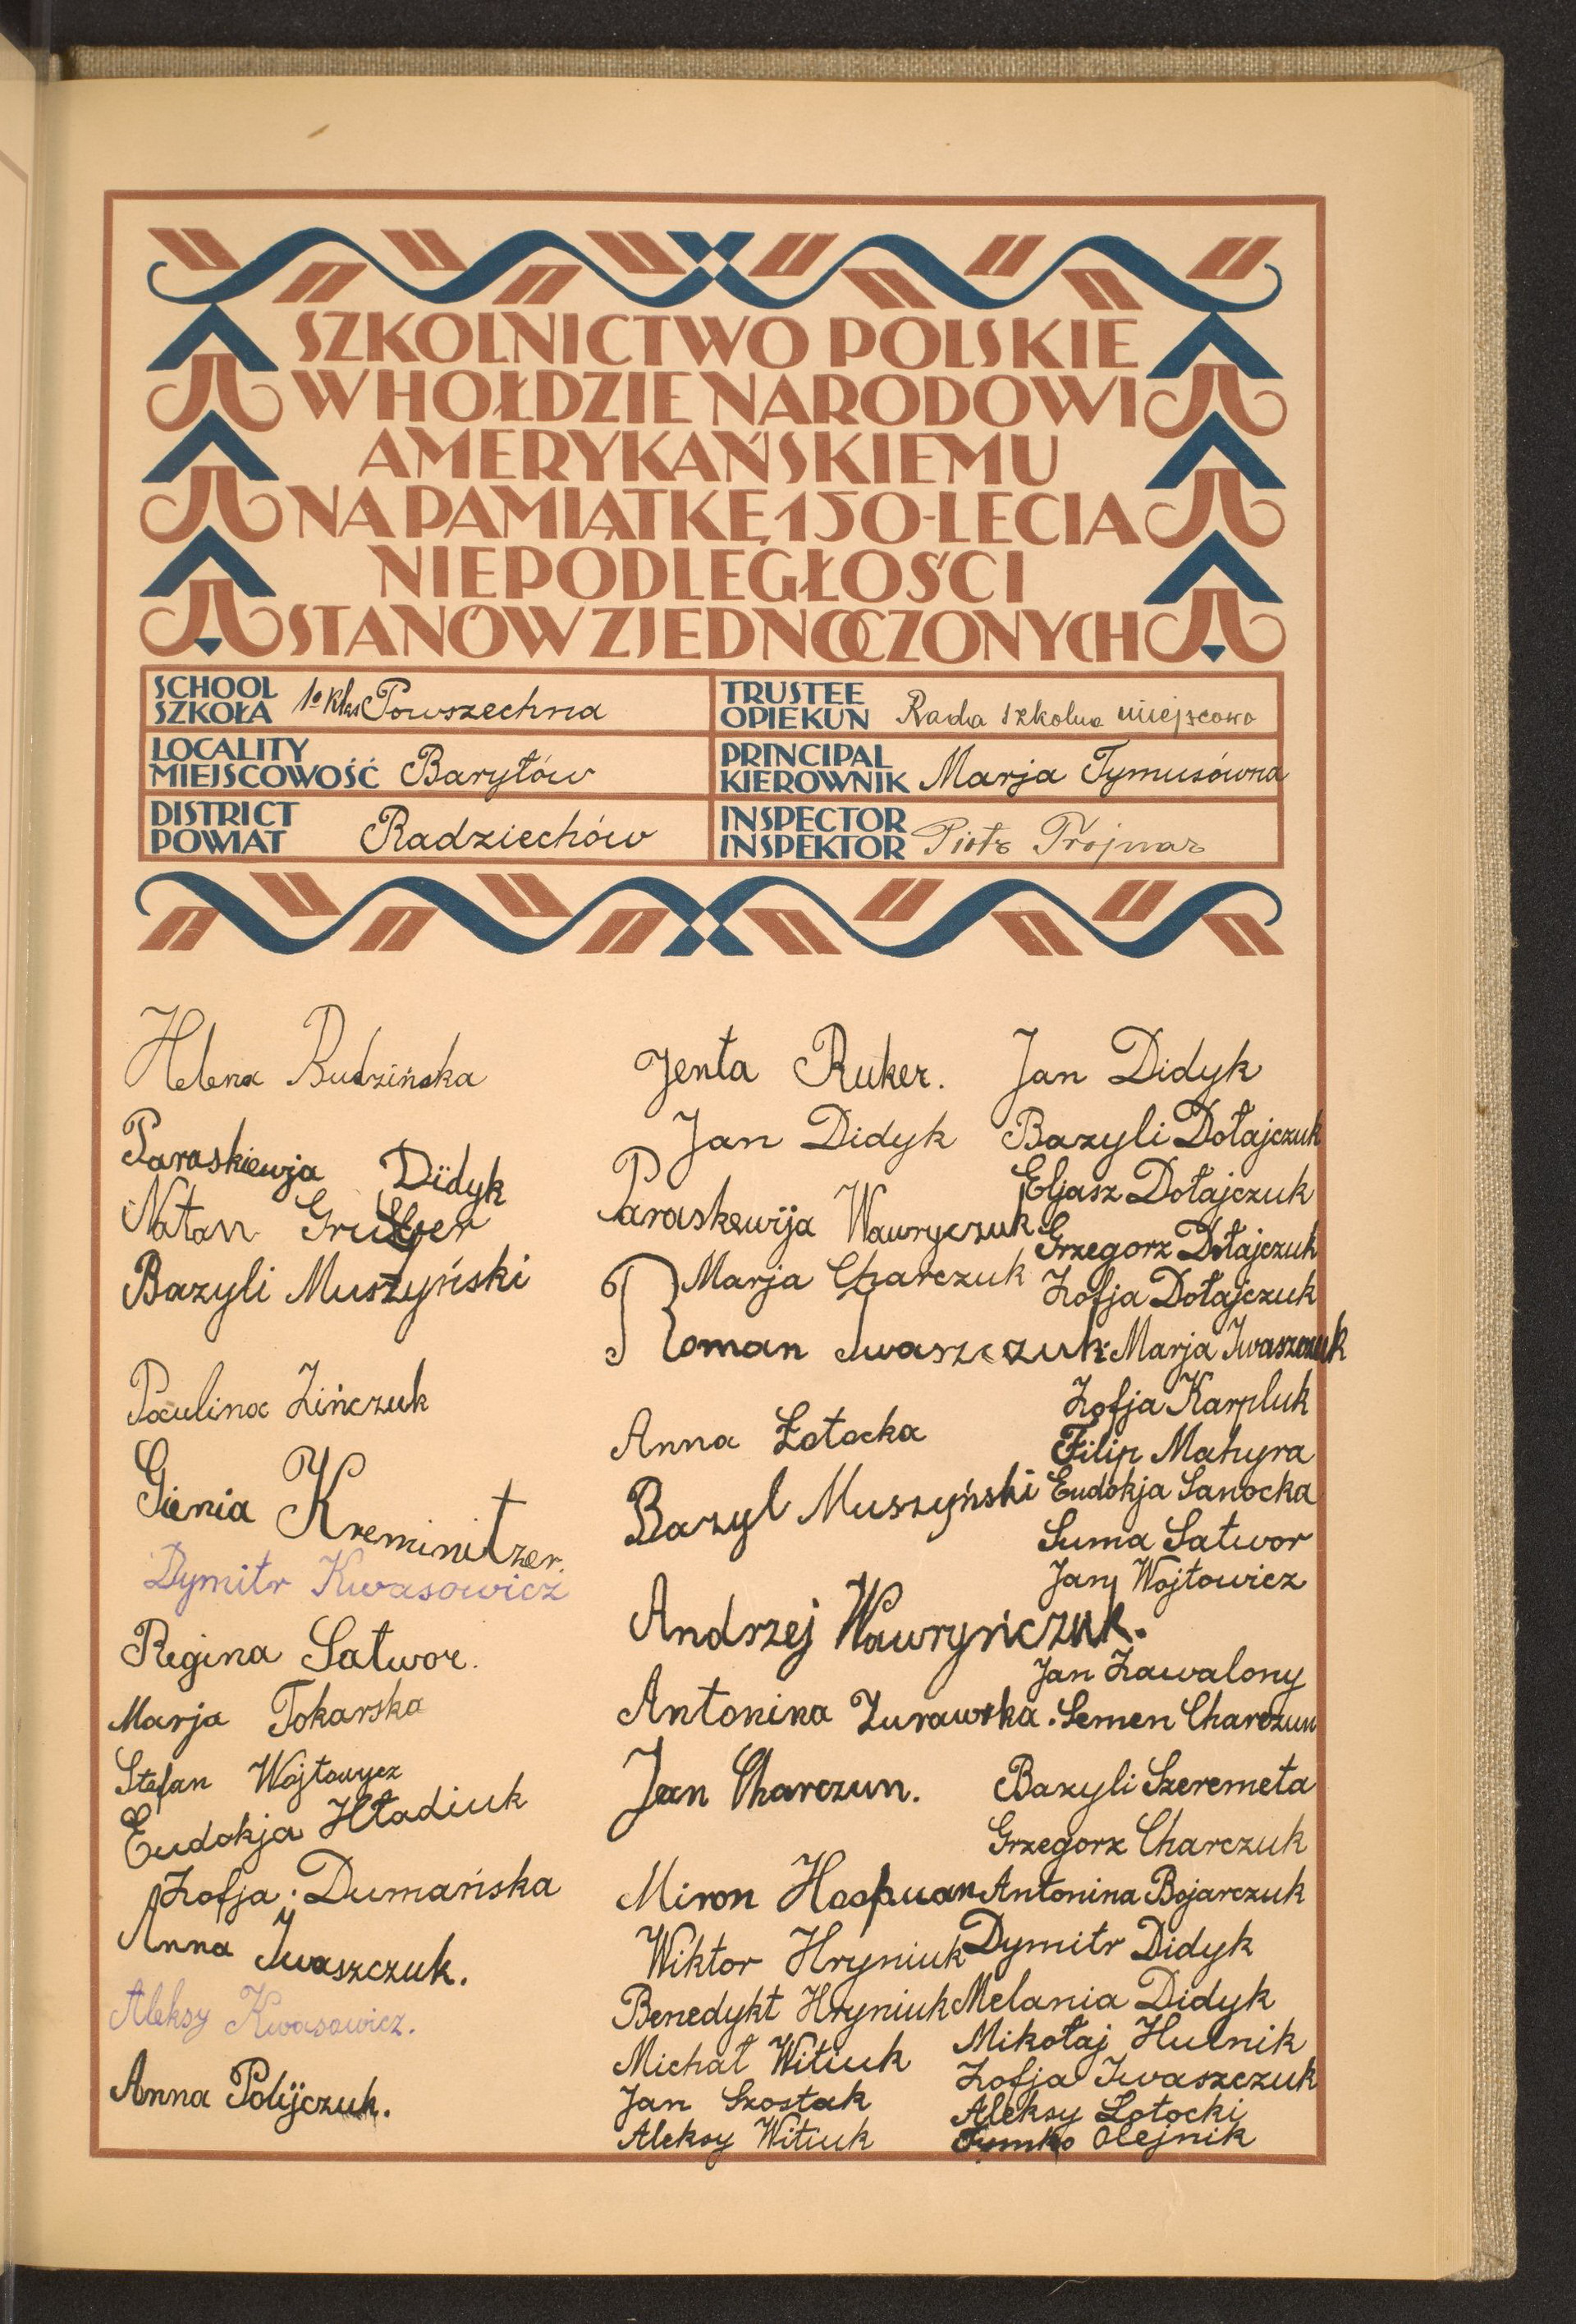 SZKOLNICTWO POLSKIE
W HOŁDZIE NARODOWI
AMERYKAŃSKIEMU
NA PAMIĄTKĘ 150-LECIA
NIEPODLEGŁOŚCI
STANÓW ZJEDNOCZONYCH
SCHOOL
SZKOŁA
1o klas Powszechna
TRUSTEE
OPIEKUN
Rada szkolna miejscowa
LOCALITY
MIEJSCOWOŚĆ
Baryłów
PRINCIPAL
KIEROWNIK
Marja Tymusówna
DISTRICT
POWIAT
Radziechów
INSPECTOR
INSPEKTOR
Piotr Trojnar
Helena Budzińska
Paraskiewja Didyk
Natan
Bazyli Muszyński
Paulina Zińczuk
Gienia Kreminitzer.
Dymitr Kwasowicz
Regina Satwor.
Marja Tokarska
Stefan Wojtowycz
Eudokja Hładiuk
Zofja Dumańska
Anna Iwaszczuk.
Aleksy Kwasowicz.
Anna Polijczuk.
Jenta Ruker.
Jan Didyk
Paraskewija Wawryczuk
Marja Charczuk
Roman Iwaszczuk
Anna Łotocka
Bazyl Muszyński
Andrzej Wawryńczuk.
Antonina Żurawska.
Jan Charczun.
Miron
Wiktor Hryniuk
Benedykt Hryniuk
Michał Witiuk
Jan Szostak
Aleksy Witiuk
Jan Didyk
Bazyli Dołajczuk
Eljasz Dołajczuk
Grzegorz Dołajczuk
Zofja Dołajczuk
Marja Iwaszczuk
Zofja Karpluk
Filip Mahyra
Eudokja Sanocka
Suma Satwor
Jan Wojtowicz
Jan Zawalony
Semen Charczun
Bazyli Szeremeta
Grzegorz Charczuk
Antonina Bojarczuk
Dymitr Didyk
Melania Didyk
Mikołaj Hulnik
Zofja Iwaszczuk
Aleksy Łotocki
Tymko Olejnik